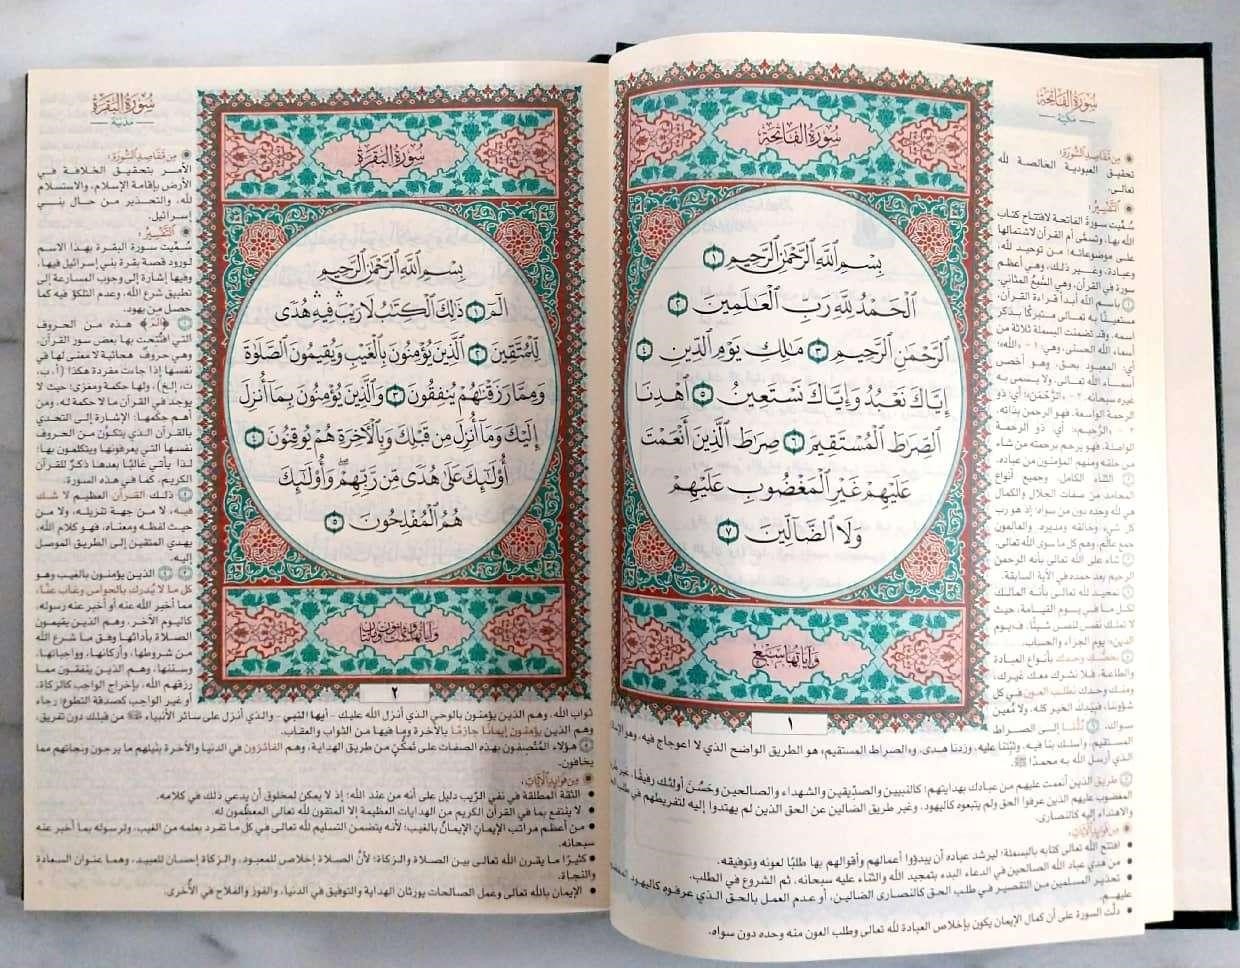 سُورَةُ الفَاتِحَةِ
مكية
سُورَةُ الفَاتِحَةِ
بِسْمِ ٱللَّهِ ٱلرَّحْمَٰنِ ٱلرَّحِيمِ ١
ٱلْحَمْدُ لِلَّهِ رَبِّ ٱلْعَٰلَمِينَ ٢
ٱلرَّحْمَٰنِ ٱلرَّحِيمِ ٣ مَٰلِكِ يَوْمِ ٱلدِّينِ ٤
إِيَّاكَ نَعْبُدُ وَإِيَّاكَ نَسْتَعِينُ ٥ ٱهْدِنَا
ٱلصِّرَٰطَ ٱلْمُسْتَقِيمَ ٦ صِرَٰطَ ٱلَّذِينَ أَنْعَمْتَ
عَلَيْهِمْ غَيْرِ ٱلْمَغْضُوبِ عَلَيْهِمْ
وَلَا ٱلضَّآلِّينَ ٧
وَآيَاتُهَا سَبْعٌ
١
مِن مَّقَاصِدِ السُّورَةِ:
تحقيق العبودية الخالصة لله
تعالى.
التَّفْسِيرُ:
سُمِّيت سورة الفاتحة لافتتاح كتاب
الله بها، وتسمَّى أم القرآن لاشتمالها
على موضوعاته؛ من توحيد لله،
وعبادة، وغير ذلك، وهي أعظم
سورة في القرآن، وهي السَّبع المثاني.
باسم الله أبدأ قراءة القرآن،
مستعينًا به تعالى متبركًا بذكر
اسمه. وقد تضمنت البسملة ثلاثة من
أسماء الله الحسنى، وهي: ١- «الله»؛
أي: المعبود بحق، وهو أخص
أسماء الله تعالى، ولا يسمى به
غيره سبحانه. ٢- «الرَّحْمَٰن»؛ أي: ذو
الرحمة الواسعة. فهو الرحمن بذاته.
٣- «الرَّحِيم»؛ أي: ذو الرحمة
الواصلة. فهو يرحم برحمته من شاء
من خلقه ومنهم المؤمنون من عباده.
الثناء الكامل، وجميع أنواع
المحامد من صفات الجلال والكمال
هي لله وحده دون من سواه؛ إذ هو رب
كل شيء وخالقه ومدبره. و«العالمون»
جمع عالَم، وهم كل ما سوى الله تعالى.
ثناء على الله تعالى بأنه الرحمن
الرحيم بعد حمده في الآية السابقة.
تمجيد لله تعالى بأنه المالك
لكل ما في يوم القيامة، حيث
لا تملك نفس لنفس شيئًا. فـ«يوم
الدين»: يوم الجزاء والحساب.
نخصك وحدك بأنواع العبادة
والطاعة، فلا نشرك معك غيرك،
ومنك وحدك نطلب العون في كل
شؤوننا، فبيدك الخير كله، ولا مُعين
سواك.
دُلَّنا إلى الصراط
المستقيم، واسلك بنا فيه، وثبِّتنا عليه، وزدنا هدى. و«الصراط المستقيم» هو الطريق الواضح الذي لا اعوجاج فيه، وهو
الذي أرسل الله به محمدًا ﷺ.
طريق الذين أنعمت عليهم من عبادك بهدايتهم؛ كالنبيين والصدِّيقين والشهداء والصالحين وحَسُنَ أولئك رفيقًا، غير
المغضوب عليهم الذين عرفوا الحق ولم يتبعوه كاليهود، وغير طريق الضالين عن الحق الذين لم يهتدوا إليه لتفريطهم في طلب
والاهتداء إليه كالنصارى.
مِن فَوَائِدِ الآيَاتِ:
• افتتح الله تعالى كتابه بالبسملة؛ ليرشد عباده أن يبدؤوا أعمالهم وأقوالهم بها طلبًا لعونه وتوفيقه.
• من هدي عباد الله الصالحين في الدعاء البدء بتمجيد الله والثناء عليه سبحانه، ثم الشروع في الطلب.
• تحذير المسلمين من التقصير في طلب الحق كالنصارى الضالين، أو عدم العمل بالحق الذي عرفوه كاليهود المغضوب
عليهم.
• دلَّت السورة على أن كمال الإيمان يكون بإخلاص العبادة لله تعالى وطلب العون منه وحده دون سواه.
سُورَةُ البَقَرَةِ
مدنية
سُورَةُ البَقَرَةِ
بِسْمِ ٱللَّهِ ٱلرَّحْمَٰنِ ٱلرَّحِيمِ
الٓمٓ ١ ذَٰلِكَ ٱلْكِتَٰبُ لَا رَيْبَ ۛ فِيهِ ۛ هُدًى
لِّلْمُتَّقِينَ ٢ ٱلَّذِينَ يُؤْمِنُونَ بِٱلْغَيْبِ وَيُقِيمُونَ ٱلصَّلَوٰةَ
وَمِمَّا رَزَقْنَٰهُمْ يُنفِقُونَ ٣ وَٱلَّذِينَ يُؤْمِنُونَ بِمَآ أُنزِلَ
إِلَيْكَ وَمَآ أُنزِلَ مِن قَبْلِكَ وَبِٱلْءَاخِرَةِ هُمْ يُوقِنُونَ ٤
أُو۟لَٰٓئِكَ عَلَىٰ هُدًى مِّن رَّبِّهِمْ ۖ وَأُو۟لَٰٓئِكَ
هُمُ ٱلْمُفْلِحُونَ ٥
٢
مِن مَّقَاصِدِ السُّورَةِ:
الأمر بتحقيق الخلافة في
الأرض بإقامة الإسلام، والاستلام
لله، والتحذير من حال بني
إسرائيل.
التَّفْسِيرُ:
سُمِّيت سورة البقرة بهذا الاسم
لورود قصة بقرة بني إسرائيل فيها،
وفيها إشارة إلى وجوب المسارعة إلى
تطبيق شرع الله، وعدم التلكؤ فيه كما
حصل من يهود.
﴿الٓمٓ﴾ هذه من الحروف
التي افتُتحت بها بعض سور القرآن
وهي حروفٌ هجائية لا معنى لها في
نفسها إذا جاءت مفردة هكذا (أ، ب،
ت، إلخ)، ولها حكمة ومغزى؛ حيث لا
يوجد في القرآن ما لا حكمة له، ومن
أهم حِكَمها: الإشارة إلى التحدي
بالقرآن الذي يتكوَّن من الحروف
نفسها التي يعرفونها ويتكلمون بها؛
لذا يأتي غالبًا بعدها ذكرٌ للقرآن
الكريم، كما في هذه السورة.
ذلك القرآن العظيم لا شك
فيه، لا من جهة تنزيله، ولا من
حيث لفظه ومعناه، فهو كلام الله،
يهدي المتقين إلى الطريق الموصل
إليه.
الذين يؤمنون بالغيب وهو
كل ما لا يُدرك بالحواس وغاب عنَّا،
مما أخبر الله عنه أو أخبر عنه رسوله،
كاليوم الآخر، وهم الذين يقيمون
الصلاة بأدائها وفق ما شرع الله
من شروطها، وأركانها، وواجباتها،
وسننها، وهم الذين ينفقون مما
رزقهم الله، بإخراج الواجب كالزكاة،
أو غير الواجب كصدقة التطوع؛ رجاء
ثواب الله، وهم الذين يؤمنون بالوحي الذي أنزل الله عليك - أيها النبي - والذي أنزل على سائر الأنبياء ﷺ من قبلك دون تفريق،
وهم الذين يؤمنون إيمانًا جازمًا بالآخرة وما فيها من الثواب والعقاب.
هؤلاء المُتَّصِفون بهذه الصفات على تمكُّنٍ من طريق الهداية، وهم الفائزون في الدنيا والآخرة بنيلهم ما يرجون ونجاتهم مما
يخافون.
مِن فَوَائِدِ الآيَاتِ:
• الثقة المطلقة في نفي الرَّيب دليل على أنه من عند الله؛ إذ لا يمكن لمخلوق أن يدعي ذلك في كلامه.
• لا ينتفع بما في القرآن الكريم من الهدايات العظيمة إلا المتقون لله تعالى المعظِّمون له.
• من أعظم مراتب الإيمان الإيمانُ بالغيب؛ لأنه يتضمن التسليم لله تعالى في كل ما تفرد بعلمه من الغيب، ولرسوله بما أخبر عنه
سبحانه.
• كثيرًا ما يقرن الله تعالى بين الصلاة والزكاة؛ لأنَّ الصلاة إخلاص للمعبود، والزكاة إحسان للعبيد، وهما عنوان السعادة
والنجاة.
• الإيمان بالله تعالى وعمل الصالحات يورثان الهداية والتوفيق في الدنيا، والفوز والفلاح في الأُخرى.